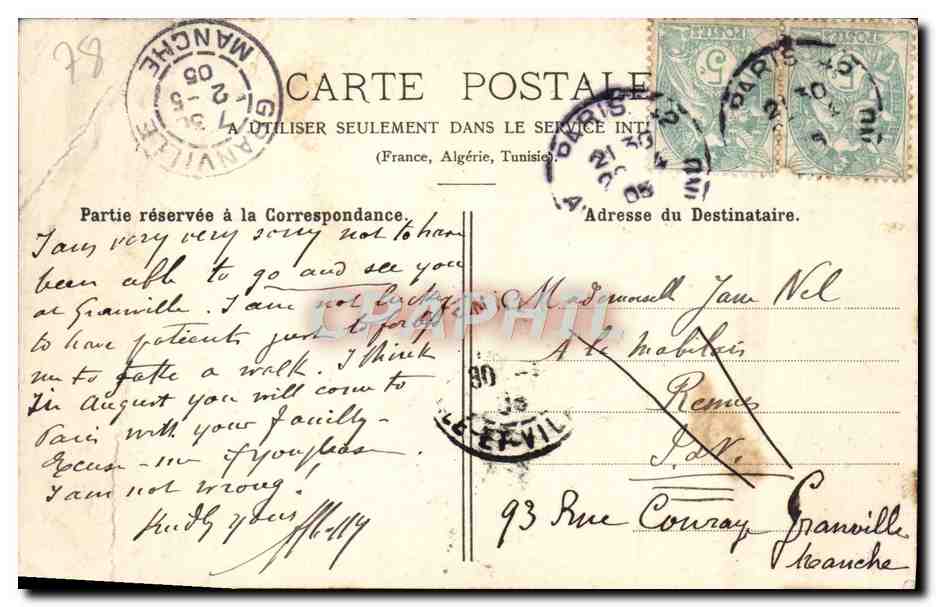 78
GRANVILLE
MANCHE
7 30
2 -5
05
CARTE POSTALE
A UTILISER SEULEMENT DANS LE SERVICE INT
(France, Algérie, Tunisie).
POSTES
5c
PARIS
21 30
05
PARIS
Partie réservée à la Correspondance.
I am very very sorry not to have
been able to go and see you
at Granville. I am not lucky
to have patients just to forbid
me to take a walk. I think
In August you will come to
Paris with your family -
Excuse-me if you please.
I am not wrong.
Kindly yours
Adresse du Destinataire.
Mademoisell Jane Nel
A la Mabilais
Rennes
I. &V.
93 Rue Couraye Granville
Manche
LLE-ET-VIL
CPAPHIL